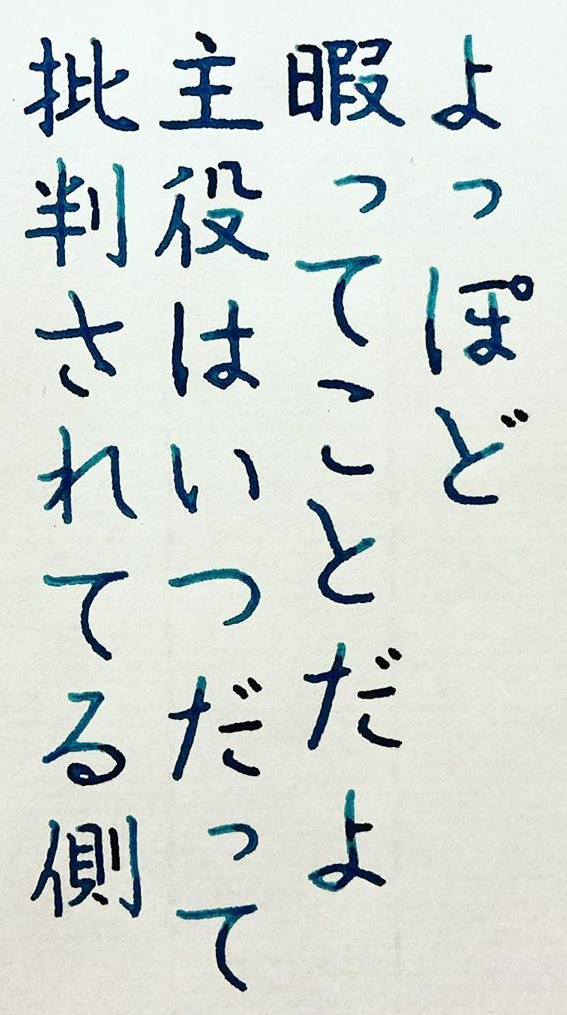 よっぽど
暇ってことだよ
主役はいつだって
批判されてる側